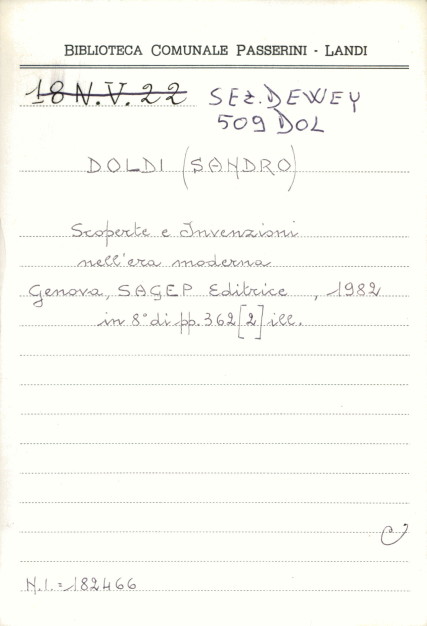 BIBLIOTECA COMUNALE PASSERINI - LANDI
18 N.V. 22 SEZ. DEWEY
509 DOL
DOLDI (SANDRO)
Scoperte e Invenzioni
nell'era moderna
Genova, SAGEP Editrice , 1982
in 8° di pp. 362 [2] ill.
N.I. = 182466